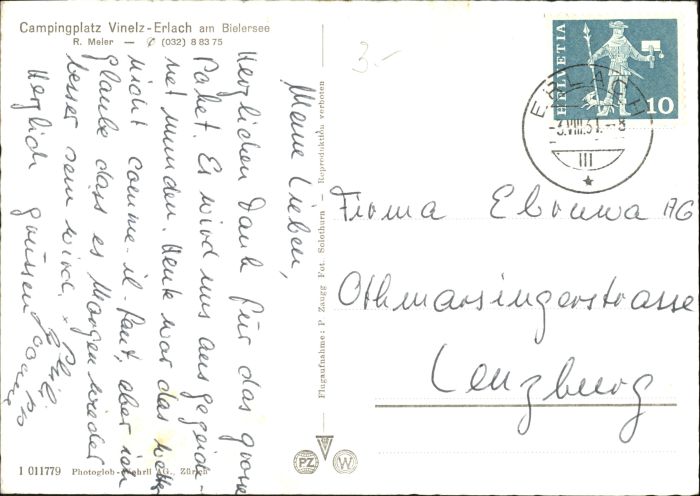 Campingplatz Vinelz-Erlach am Bielersee
R. Meier — ✆ (032) 8 83 75
Meine Lieben,
Herzlichen Dank für das grosse
Paket. Es wird uns ausgezeich-
net munden. Heute war das Wetter
nicht comme-il-faut, aber ich
glaube dass es Morgen wieder
besser sein wird.
Herzlich grüssen
Flugaufnahme: P. Zaugg Fot. Solothurn — Reproduktion verboten
3.-
HELVETIA
10
ERLACH
III
Firma Ebruwa AG
Othmarsingerstrasse
Lenzburg
PZ
W
1 011779 Photoglob-Wehrli AG., Zürich